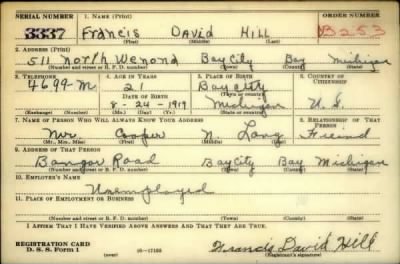 SERIAL NUMBER 1. NAME (Print) ORDER NUMBER
3337 Francis David HILL B253
(First) (Middle) (Last)
2. ADDRESS (Print)
511 North Wenona Bay City Bay Michigan
(Number and street or R. F. D. number) (Town) (County) (State)
3. TELEPHONE 4. AGE IN YEARS 5. PLACE OF BIRTH 6. COUNTRY OF CITIZENSHIP
4699-M 21 Bay City
DATE OF BIRTH (Town or county)
8-24-1919 Michigan U. S.
(Exchange) (Number) (Mo.) (Day) (Yr.) (State or country)
7. NAME OF PERSON WHO WILL ALWAYS KNOW YOUR ADDRESS 8. RELATIONSHIP OF THAT PERSON
Mr. Cooper N. Long Friend
(Mr., Mrs., Miss) (First) (Middle) (Last)
9. ADDRESS OF THAT PERSON
Bangor Road Bay City Bay Michigan
(Number and street or R. F. D. number) (Town) (County) (State)
10. EMPLOYER'S NAME
Unemployed
11. PLACE OF EMPLOYMENT OR BUSINESS
(Number and street or R. F. D. number) (Town) (County) (State)
I AFFIRM THAT I HAVE VERIFIED ABOVE ANSWERS AND THAT THEY ARE TRUE.
REGISTRATION CARD
D. S. S. Form 1 (over) 16-17105 Francis David Hill
(Registrant's signature)